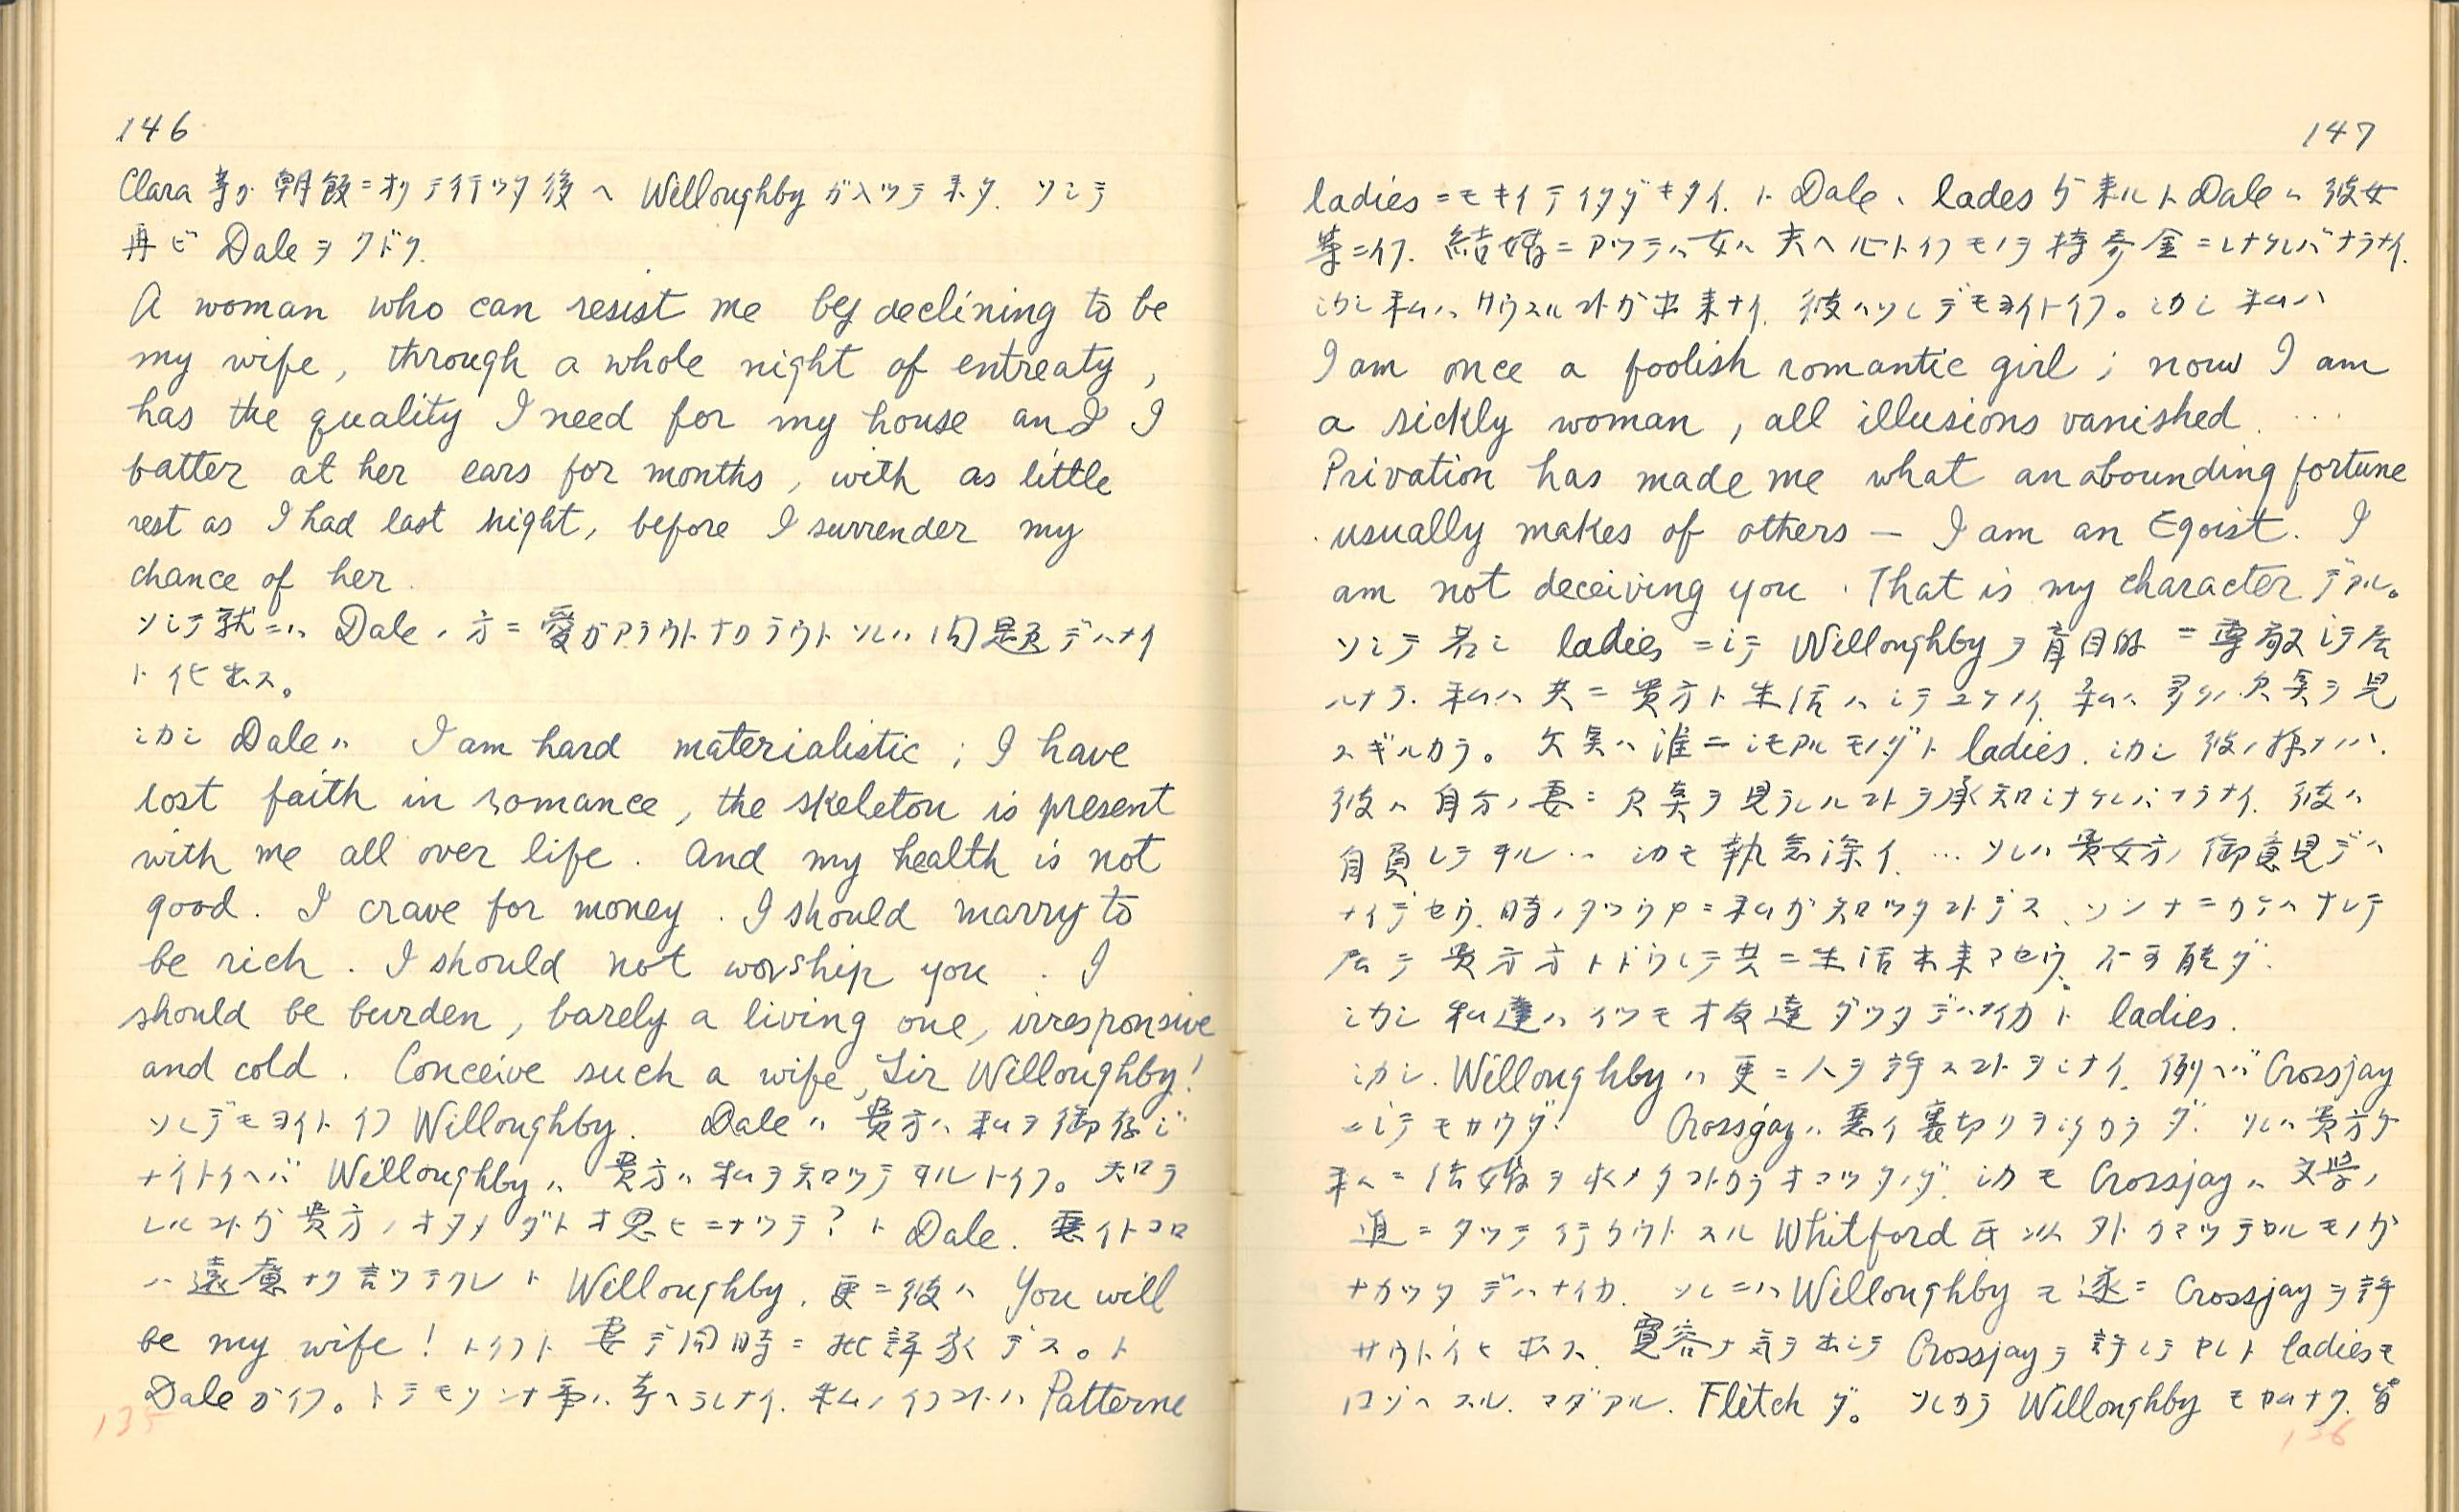 146
Clara 等ガ朝飯ニオリテ行ッタ後ヘ Willoughby ガ入ッテ来タ. ソシテ
再ビ Dale ヲクドク.
A woman who can resist me by declining to be
my wife, through a whole night of entreaty,
has the quality I need for my house and I
batter at her ears for months, with as little
rest as I had last night, before I surrender my
chance of her.
ソシテ就ニハ Dale ノ方ニ愛ガアラウトナカラウトソレハ問題デハナイ
ト化出ス。
シカシ Dale ハ I am hard materialistic; I have
lost faith in romance, the skeleton is present
with me all over life. And my health is not
good. I crave for money. I should marry to
be rich. I should not worship you. I
should be burden, barely a living one, irresponsive
and cold. Conceive such a wife, Sir Willoughby!
ソレデモヨイトイフ Willoughby. Dale ハ貴方ハ私ヲ御存じ
ナイトイヘバ Willoughby ハ貴方ハ私ヲ知ロッテヰルトイフ。知ロラ
レルコトガ貴方ノオタメダトオ思ヒニナッテ? ト Dale. 悪イトコロ
ハ遠慮ナク言ッテクレト Willoughby. 更ニ彼ハ You will
be my wife! トイフト妻デ同時ニ批評家デス。ト
Dale ガイフ。トテモソンナ事ハ考ヘラレナイ. 私ノイフコトハ Patterne
135
147
ladies ニモキイテイタダキタイ. ト Dale. lades ガ来ルト Dale ハ彼女
等ニイフ. 結婚ニアッテハ女ハ夫ヘ心トイフモノヲ持参金ニシナケレバナラナイ.
シカシ私ハサウスルコトガ出来ナイ. 彼ハソレデモヨイトイフ。シカシ私ハ
I am once a foolish romantic girl; now I am
a sickly woman, all illusions vanished. ...
Privation has made me what an abounding fortune
usually makes of others — I am an Egoist. I
am not deceiving you. That is my character デアル。
ソシテ若シ ladies ニシテ Willoughby ヲ盲目的ニ尊敬シテ居
ルナラ. 私ハ共ニ貴方ト生活ハシテユケナイ. 私ハ多クノ欠点ヲ見
スギルカラ。欠点ハ誰ニシモアルモノダト ladies. シカシ彼ノ様ナノハ.
彼ハ自分ノ妻ニ欠点ヲ見ラレルコトヲ承知シナケレバナラナイ. 彼ハ
自負シテヰル... シカモ執念深イ. ... ソレハ貴女方ノ御意見デハ
ナイデセウ. 時ノタツウチニ私ガ知ロッタコトデス. ソンナニカケハナレテ
居テ貴方方トドウシテ共ニ生活出来マセウ. 不可能ダ.
シカシ私達ハイツモオ友達ダッタデハナイカト ladies.
シカシ. Willoughby ハ更ニ人ヲ許スコトヲシナイ. 例ヘバ Crossjay
ニシテモサウダ. Crossjay ハ悪イ裏切リヲシタカラダ. ソレハ貴方ガ
私ニ結婚ヲ求メタコトカラオコッタノダ. シカモ Crossjay ハ文学ノ
道ニタッテ行カウトスル Whitford 氏以外カマッテヤルモノガ
ナカッタデハナイカ. ソレニハ Willoughby モ遂ニ Crossjay ヲ許
サウトイヒ出ス. 寛容ナ気ヲ出シテ Crossjay ヲ許シテヤレト ladies モ
口ゾヘスル. マダアル. Flitch ダ。ソレカラ Willoughby モヤムナク. 皆
136